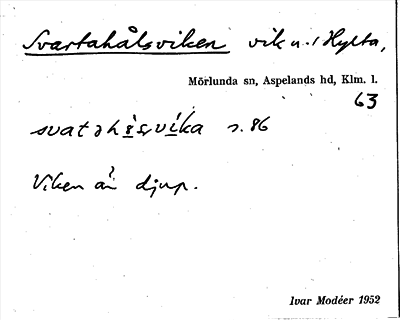 Svartahålsviken vik u. 1 Hylta,
Mörlunda sn, Aspelands hd, Klm. l.
63
s. 86
Viken är djup.
Ivar Modéer 1952